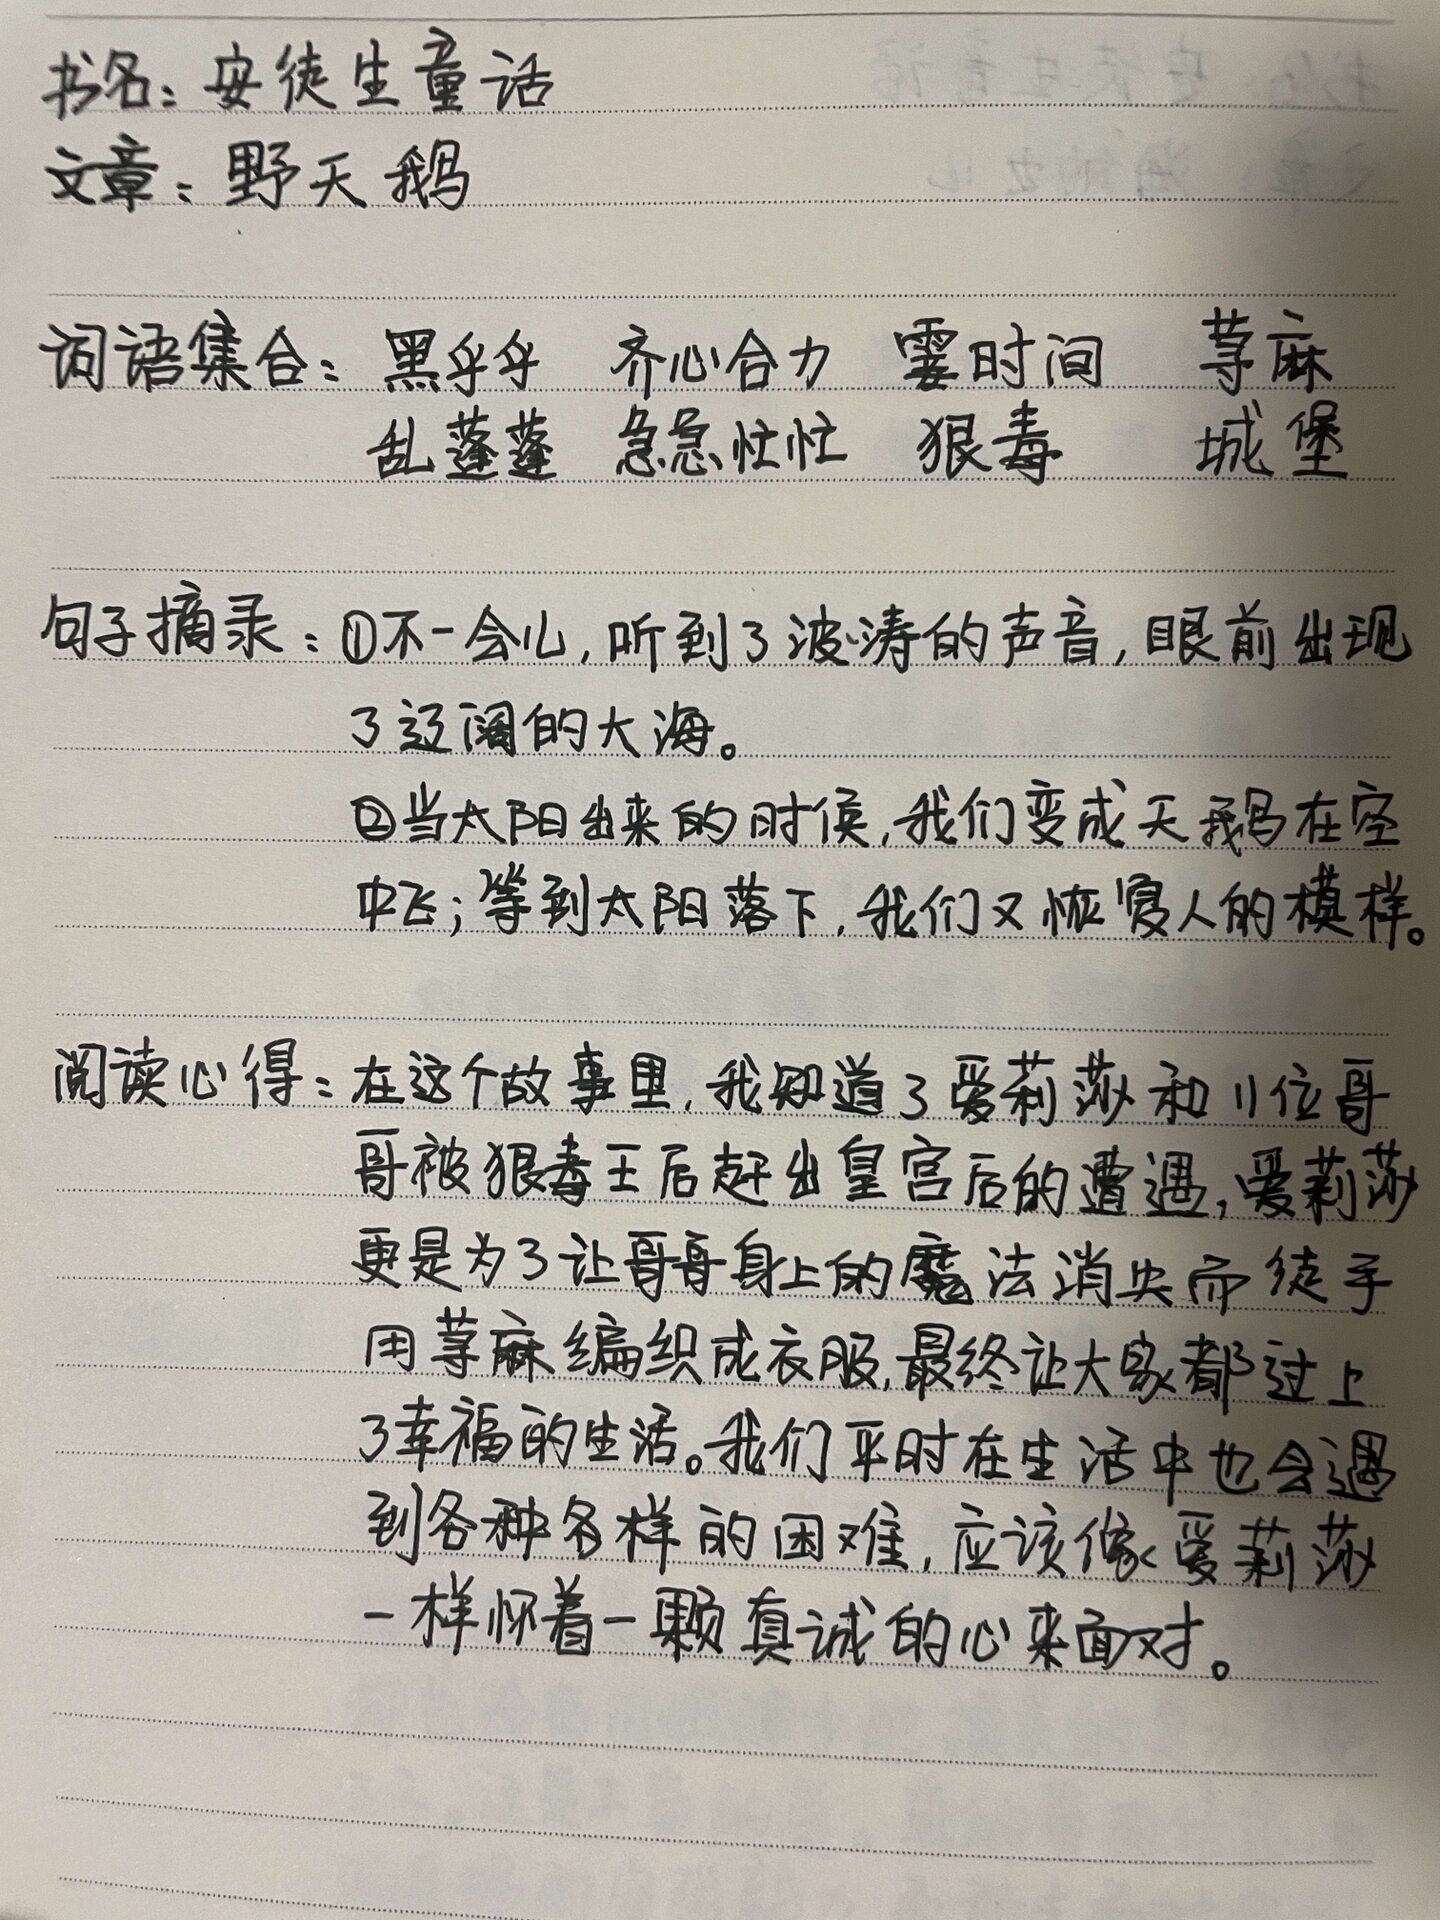 书名：安徒生童话
文章：野天鹅
词语集合：黑乎乎 齐心合力 霎时间 荨麻
乱蓬蓬 急急忙忙 狠毒 城堡
句子摘录：①不一会儿，听到了波涛的声音，眼前出现
了辽阔的大海。
②当太阳出来的时候，我们变成天鹅在空
中飞；等到太阳落下，我们又恢复人的模样。
阅读心得：在这个故事里，我知道了爱莉莎和11位哥
哥被狠毒王后赶出皇宫后的遭遇，爱莉莎
更是为了让哥哥身上的魔法消失而徒手
用荨麻编织成衣服，最终让大家都过上
了幸福的生活。我们平时在生活中也会遇
到各种各样的困难，应该像爱莉莎
一样怀着一颗真诚的心来面对。